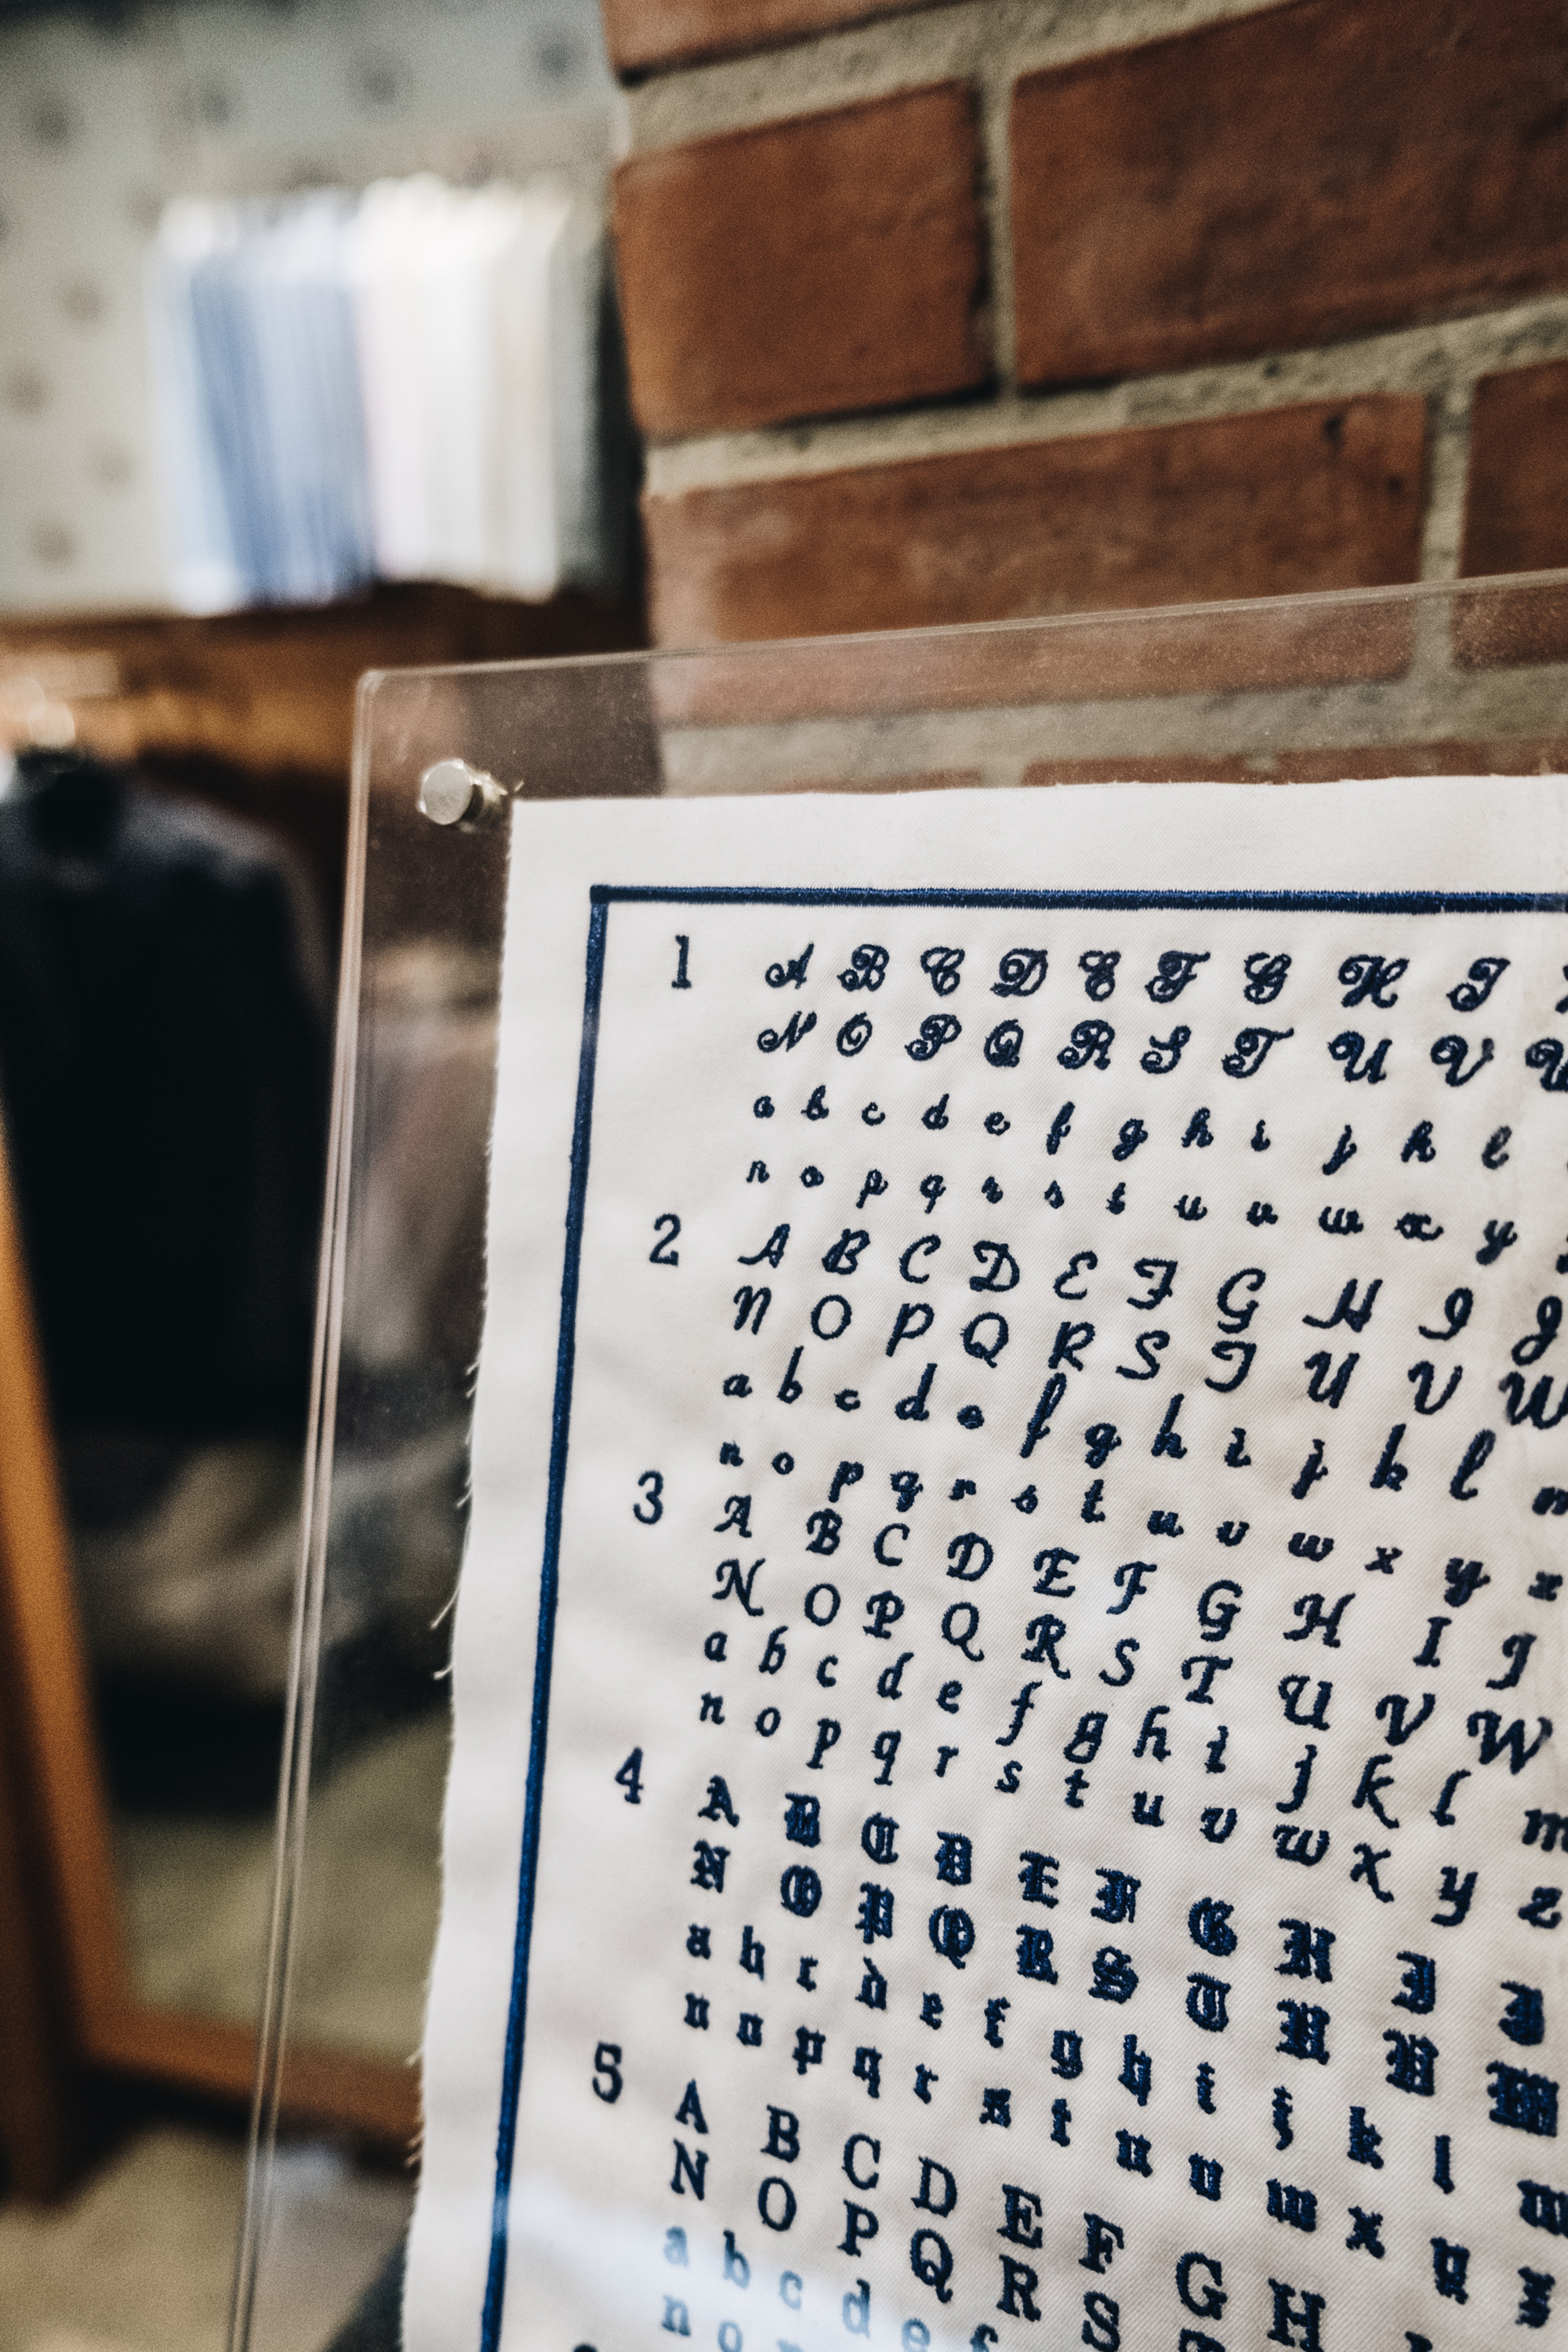 1 A B C D E F G H I
N O P Q R S T U V W
a b c d e f g h i j k l
n o p q r s t u v w x y
2 A B C D E F G H I J
N O P Q R S T U V W
a b c d e f g h i j k l m
n o p q r s t u v w x y z
3 A B C D E F G H I J
N O P Q R S T U V W
a b c d e f g h i j k l m
n o p q r s t u v w x y z
4 A B C D E F G H I J
N O P Q R S T U V W
a b c d e f g h i j k l m
n o p q r s t u v w x y z
5 A B C D E F G H
N O P Q R S
a b c d e f
n o